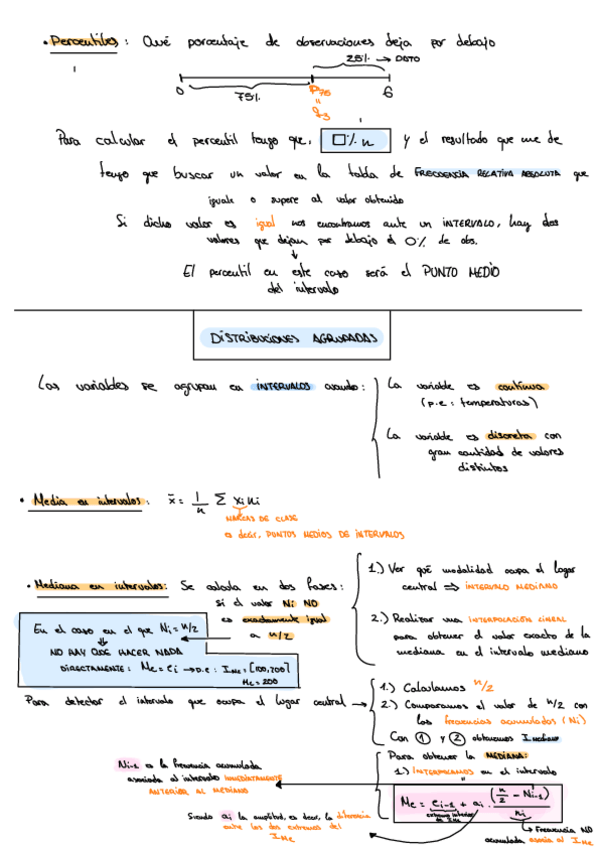 • Percentiles: Qué porcentaje de observaciones deja por debajo
25% → DATO
0
75%
P75
=
q3
6
Para calcular el percentil tengo que: □% n y el resultado que me de
tengo que buscar un valor en la tabla de FRECUENCIA RELATIVA ABSOLUTA que
iguale o supere al valor obtenido
Si dicho valor es igual nos encontramos ante un INTERVALO, hay dos
valores que dejan por debajo el 0% de obs.
↓
El percentil en este caso será el PUNTO MEDIO
del intervalo
DISTRIBUCIONES AGRUPADAS
Las variables se agrupan en INTERVALOS cuando:
La variable es continua
(p.e: temperaturas)
La variable es discreta con
gran cantidad de valores
distintos
• Media en intervalos: x̄ = 1/n Σ xi ni
MARCAS DE CLASE
es decir, PUNTOS MEDIOS DE INTERVALOS
• Mediana en intervalos: Se calcula en dos fases:
1.) Ver qué modalidad ocupa el lugar
central ⇒ INTERVALO MEDIANO
2.) Realizar una INTERPOLACIÓN LINEAL
para obtener el valor exacto de la
mediana en el intervalo mediano
si el valor Ni NO
es exactamente igual
a n/2
En el caso en el que Ni = n/2
↓
NO HAY QUE HACER NADA
DIRECTAMENTE: Me = ei → p.e: IMe = [100,200]
Me = 200
Para detectar el intervalo que ocupa el lugar central →
1.) Calculamos n/2
2.) Comparamos el valor de n/2 con
las frecuencias acumuladas (Ni)
Con ① y ② obtenemos I mediano
Para obtener la MEDIANA:
1.) INTERPOLAMOS en el intervalo
Me = ei-1 + ai · (n/2 - Ni-1) / ni
extremo inferior
de IMe
Ni-1 es la frecuencia acumulada
asociada al intervalo INMEDIATAMENTE
ANTERIOR AL MEDIANO
Siendo ai la amplitud, es decir, la diferencia
entre los dos extremos del
IMe
→ Frecuencia NO
acumulada asocia al IMe